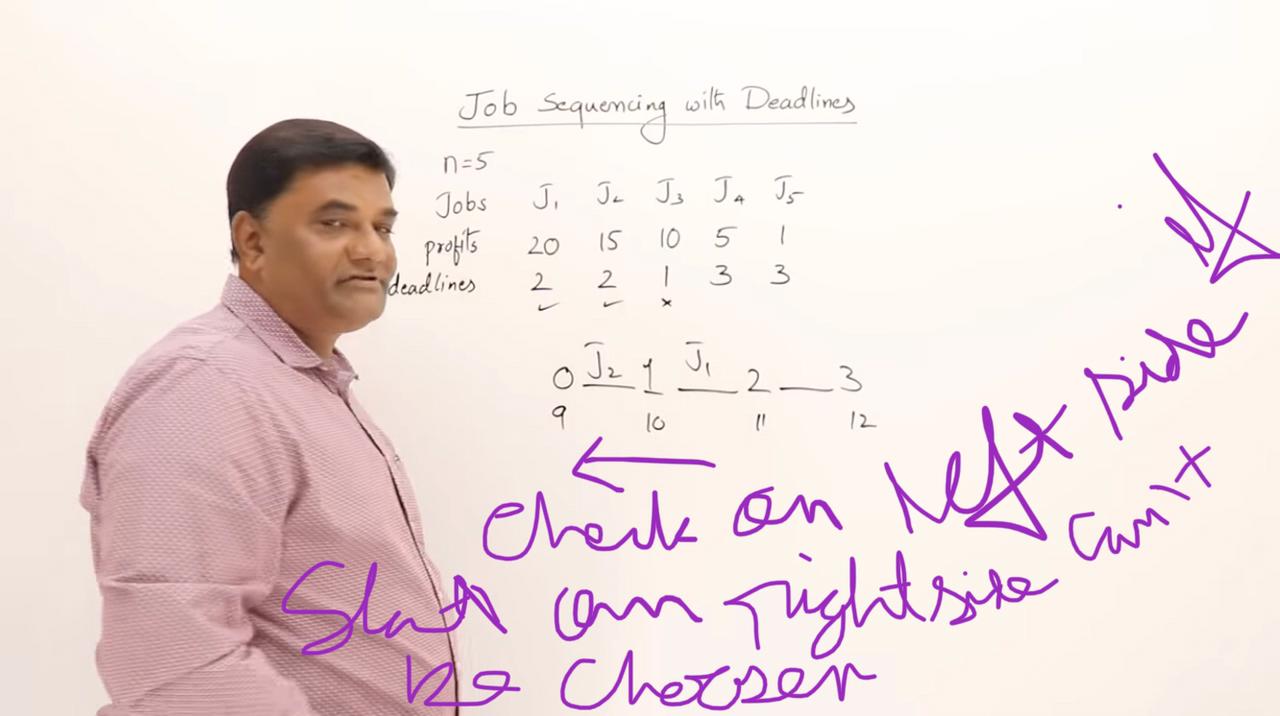 Job Sequencing with Deadlines
n=5
Jobs J₁ J₂ J₃ J₄ J₅
profits 20 15 10 5 1
deadlines 2 2 1 3 3
✓ ✓ ×
0 J₂ 1 J₁ 2 __ 3
9 10 11 12
←
Check on left side if
Slots on rightside can't
be Choosen